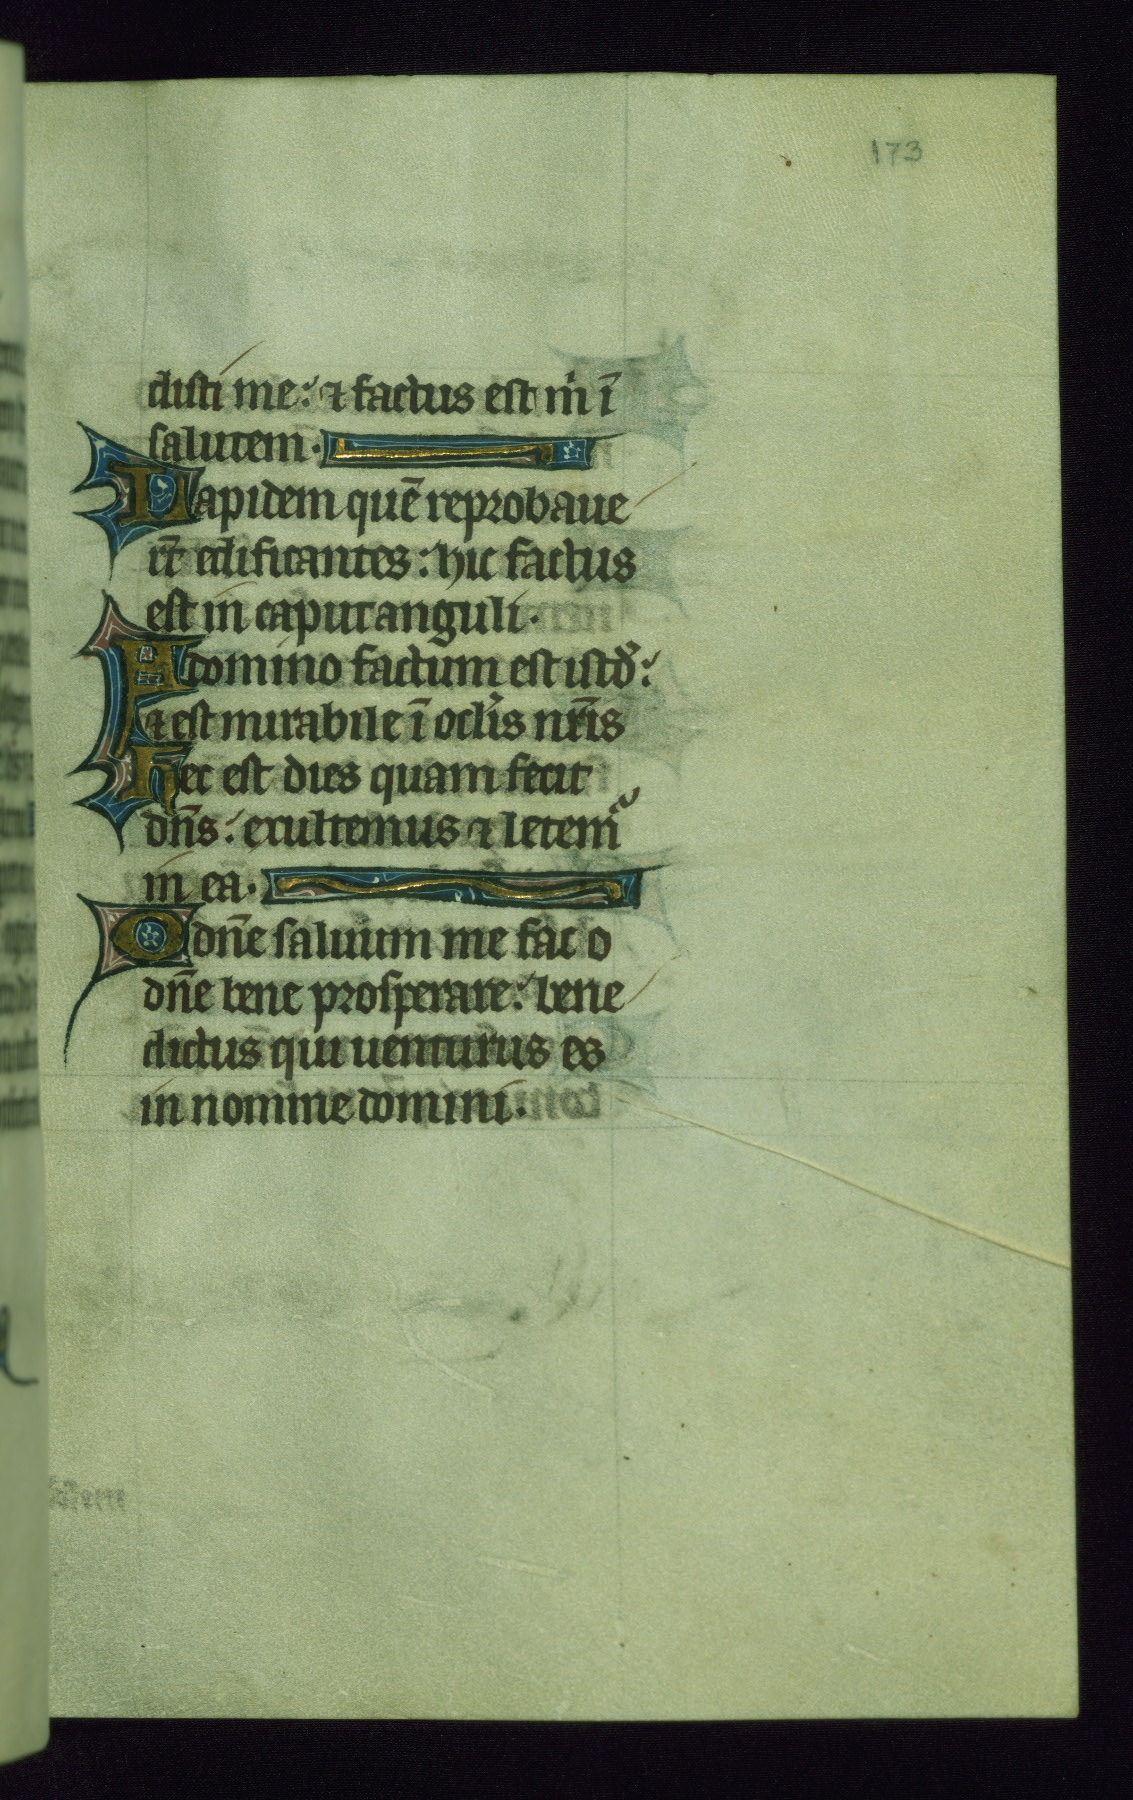 173
disti me: ⁊ factus est m̍ ī
salutem.
Lapidem quē reprobaue
rt̄ edificantes: hic factus
est in caput anguli.
A domino factum est istd̾:
⁊ est mirabile ī oclis nr̄is
Hec est dies quam fecit
dn̄s: exultemus ⁊ letem̾
in ea.
O dn̄e saluum me fac o
dn̄e bene prosperare: bene
dictus qui uenturus es
in nomine domini.